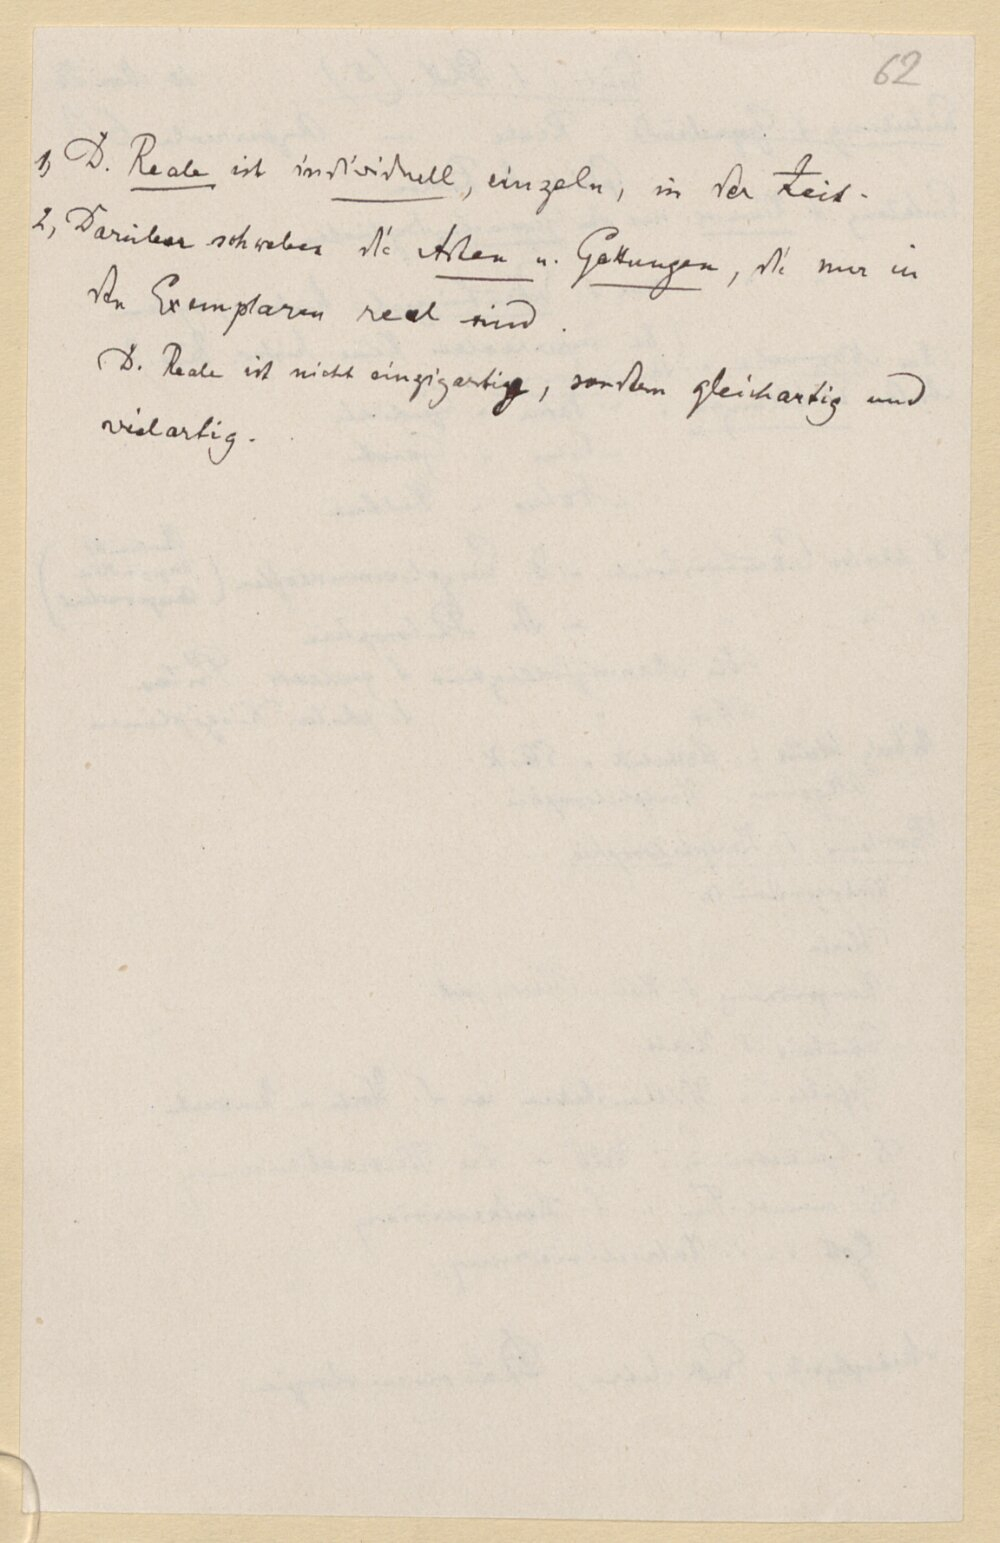 62
1, D. Reale ist individuell, einzeln, in der Zeit.
2, Darüber schweben die Arten u. Gattungen, die nur in
den Exemplaren real sind.
D. Reale ist nicht einzigartig, sondern gleichartig und
vielartig.